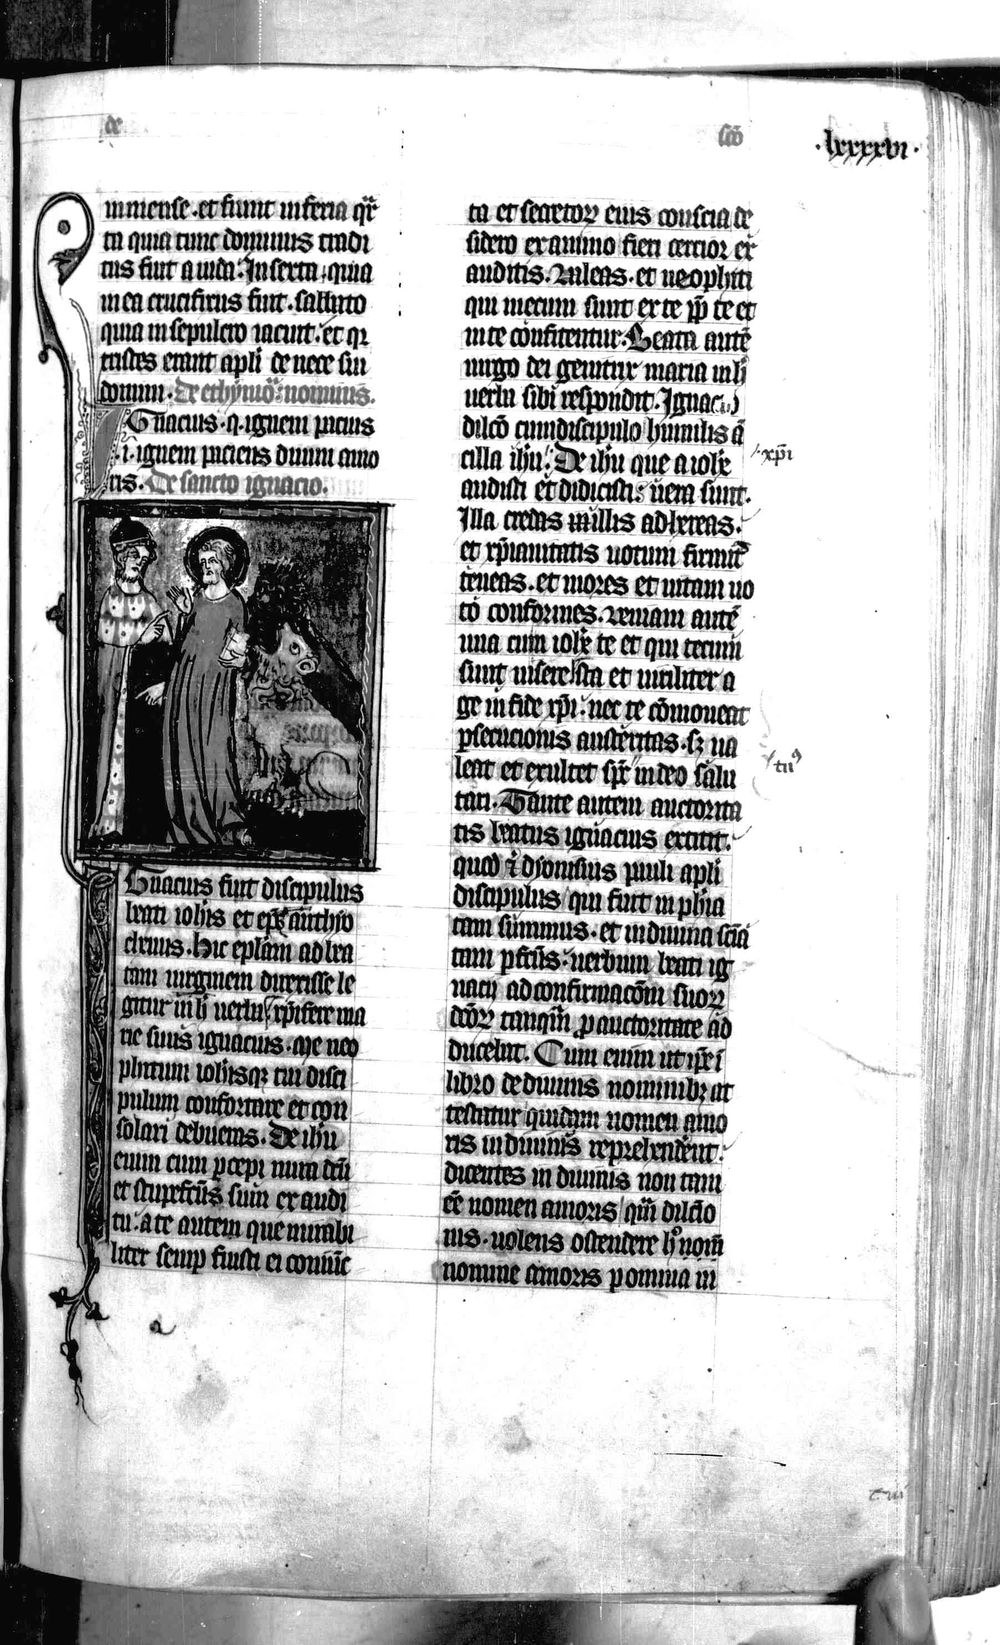 de
sco̅
·lxxxxvi·
in mense · et fiunt in feria qr̅
ta quia tunc dominus tradi
tus fuit a iuda. In sexta · quia
in ea crucifixus fuit · sabbato
quia in sepulcro iacuit · et qr
tristes erant apl̅i de nece sui
domini · De ethymo̅ nominis.
Gnacius · q̅ · ignem pacius
·i· ignem paciens diuini amo
ris. De sancto ignacio.
Gnacius fuit discipulus
beati ioh̅is et ep̅s anthyo
chenus. Hic ep̅lam ad bea
tam uirginem direxisse le
gitur in h̅ uerbis. xp̅ifere ma
rie suus ignacius. Me neo
phitum ioh̅isq; tui disci
pulum confortare et con
solari debueras. De ih̅u
enim tuo p̅cepi mira dc̅u
et stupefc̅us sum ex audi
tu. a te autem que mirabi
liter semp̅ fuisti ei co̅iu̅c
ta et secretor̅ eius conscia de
sidero ex animo fieri cercior ex̅
auditis. Valeas · et neophiti
qui mecum sunt ex te p̅ te et
in te confitentur. Beata aute̅
uirgo dei genitrix maria in h̅
uerbis sibi respondit. Ignacio
dilc̅o condiscipulo humilis a̅
cilla ih̅u. De ih̅u que a ioh̅e
xp̅i
audisti et didicisti · uera sunt.
Illa credas illis adhereas.
et xp̅ianitatis uotum firmit̅
teneas · et mores et uitam uo
to conformes. Veniam aute̅
una cum ioh̅e te et qui tecum
sunt uisere · sta et uiriliter a
ge in fide xp̅i · nec te co̅moueat
p̅secucionis austeritas · s; ua
leat et exultet sp̅c in deo salu
tuus
tari. Tante autem auctorita
tis beatus ignacius extitit.
quod et dyonisius pauli apl̅i
discipulus qui fuit in ph̅ia
tam summus · et in diuina scia̅
tam p̅fc̅us · uerbum beati ig
nacij ad confirmaco̅m suor̅
dc̅or̅ tanqm̅ p̅ auctoritate ad
ducebat. Cum enim ut ip̅e i̅
libro de diuinis nominib; at
testatur quidam nomen amo
ris in diuinis reprehendent.
dicentes in diuinis non tam
ee̅ nomen amoris qm̅ dilc̅o
nis · uolens ostendere h̅ nom̅
nomine amoris p omnia in